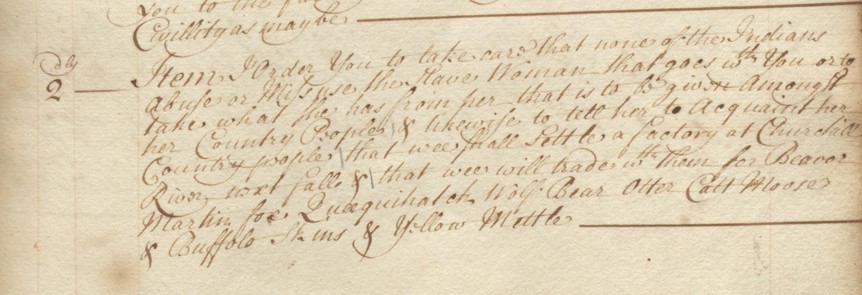 you to the
Civillity as may be
2dly Item I Order You to take care that none of the Indians
abuse or Missuse the Slave Woman that goes wth You or to
take what she has from her that is to be given Amongst
her Country People, & likewise to tell her to Acquaint her
Country people that wee shall Settle a factory at Churchill
River next fall & that wee will trade wth them for Beavor
Martin fox Queequihatch Wolf Bear Otter Catt Moose
& Buffolo Skins & Yellow Mettle